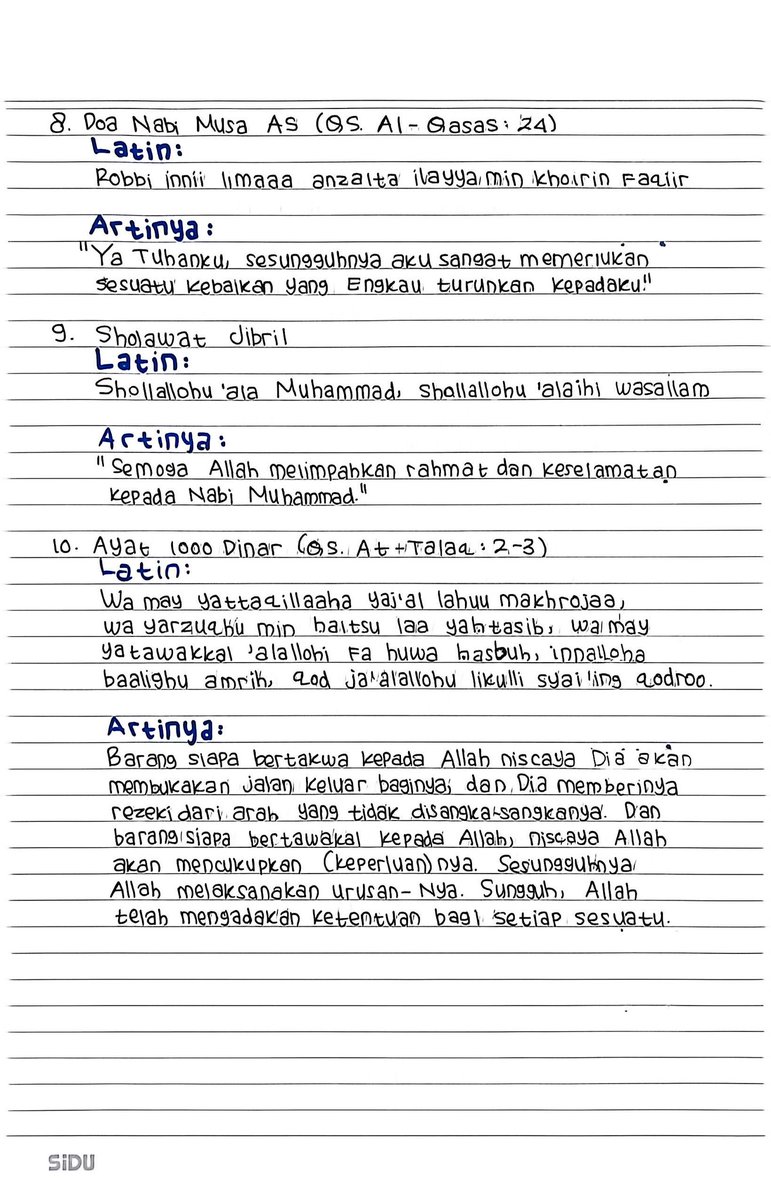 8. Doa Nabi Musa AS (QS. Al-Qasas: 24)
Latin:
Robbi innii limaaa anzalta ilayya min khoirin Faqiir
Artinya:
"Ya Tuhanku, sesungguhnya aku sangat memerlukan
sesuatu kebaikan yang Engkau turunkan kepadaku."
9. Sholawat Jibril
Latin:
Shollallohu 'ala Muhammad, shollallohu 'alaihi wasallam
Artinya:
"Semoga Allah melimpahkan rahmat dan keselamatan
kepada Nabi Muhammad."
10. Ayat 1000 Dinar (QS. At-Talaq: 2-3)
Latin:
Wa may yattaqillaaha yaj'al lahuu makhrojaa,
wa yarzuqhu min haitsu laa yahtasib, wa may
yatawakkal 'alallohi Fa huwa hasbuh, innalloha
baalighu amrih, qod ja'alallohu likulli syai'ing qodroo.
Artinya:
Barang siapa bertakwa kepada Allah niscaya Dia akan
membukakan jalan keluar baginya, dan Dia memberinya
rezeki dari arah yang tidak disangka-sangkanya. Dan
barang siapa bertawakal kepada Allah, niscaya Allah
akan mencukupkan (keperluan)nya. Sesungguhnya
Allah melaksanakan urusan-Nya. Sungguh, Allah
telah mengadakan ketentuan bagi setiap sesuatu.
SiDU